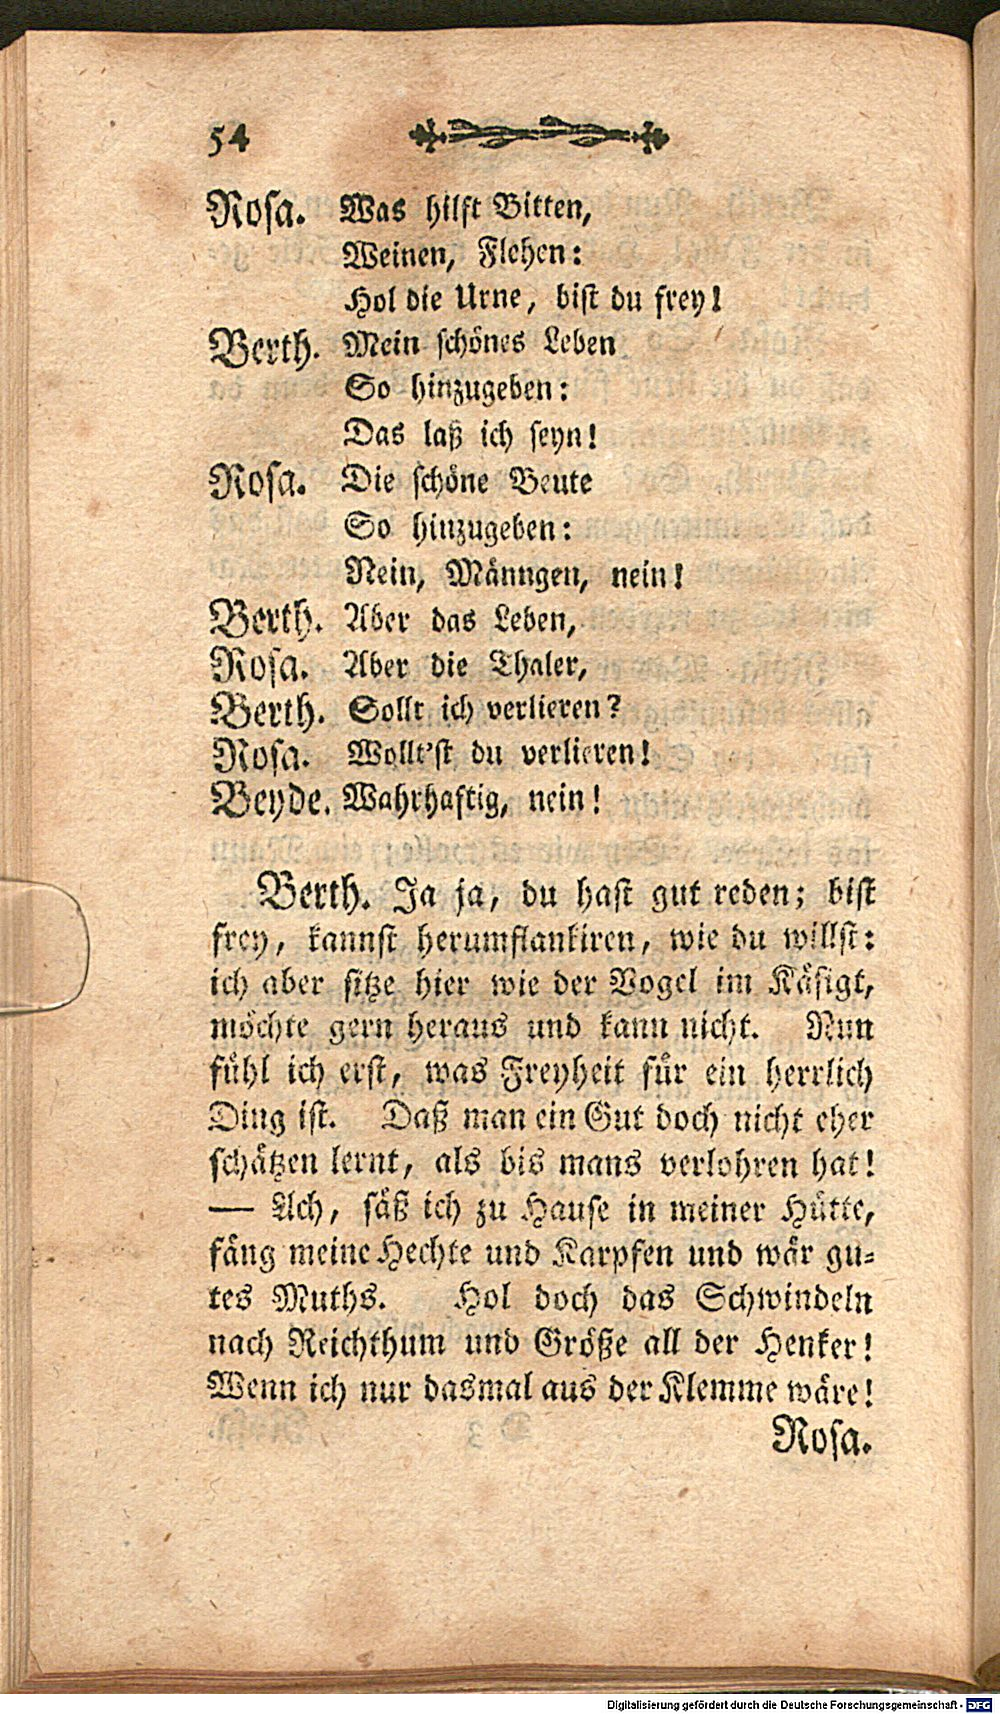 54
Rosa. Was hilft Bitten,
Weinen, Flehen:
Hol die Urne, bist du frey!
Berth. Mein schönes Leben
So hinzugeben:
Das laß ich seyn!
Rosa. Die schöne Beute
So hinzugeben:
Nein, Männgen, nein!
Berth. Aber das Leben,
Rosa. Aber die Thaler,
Berth. Sollt ich verlieren?
Rosa. Wollt'st du verlieren!
Beyde. Wahrhaftig, nein!
Berth. Ja ja, du hast gut reden; bist
frey, kannst herumflankiren, wie du willst:
ich aber sitze hier wie der Vogel im Käfigt,
möchte gern heraus und kann nicht. Nun
fühl ich erst, was Freyheit für ein herrlich
Ding ist. Daß man ein Gut doch nicht eher
schätzen lernt, als bis mans verlohren hat!
— Ach, säß ich zu Hause in meiner Hütte,
fäng meine Hechte und Karpfen und wär gu-
tes Muths. Hol doch das Schwindeln
nach Reichthum und Größe all der Henker!
Wenn ich nur dasmal aus der Klemme wäre!
Rosa.
Digitalisierung gefördert durch die Deutsche Forschungsgemeinschaft - DFG